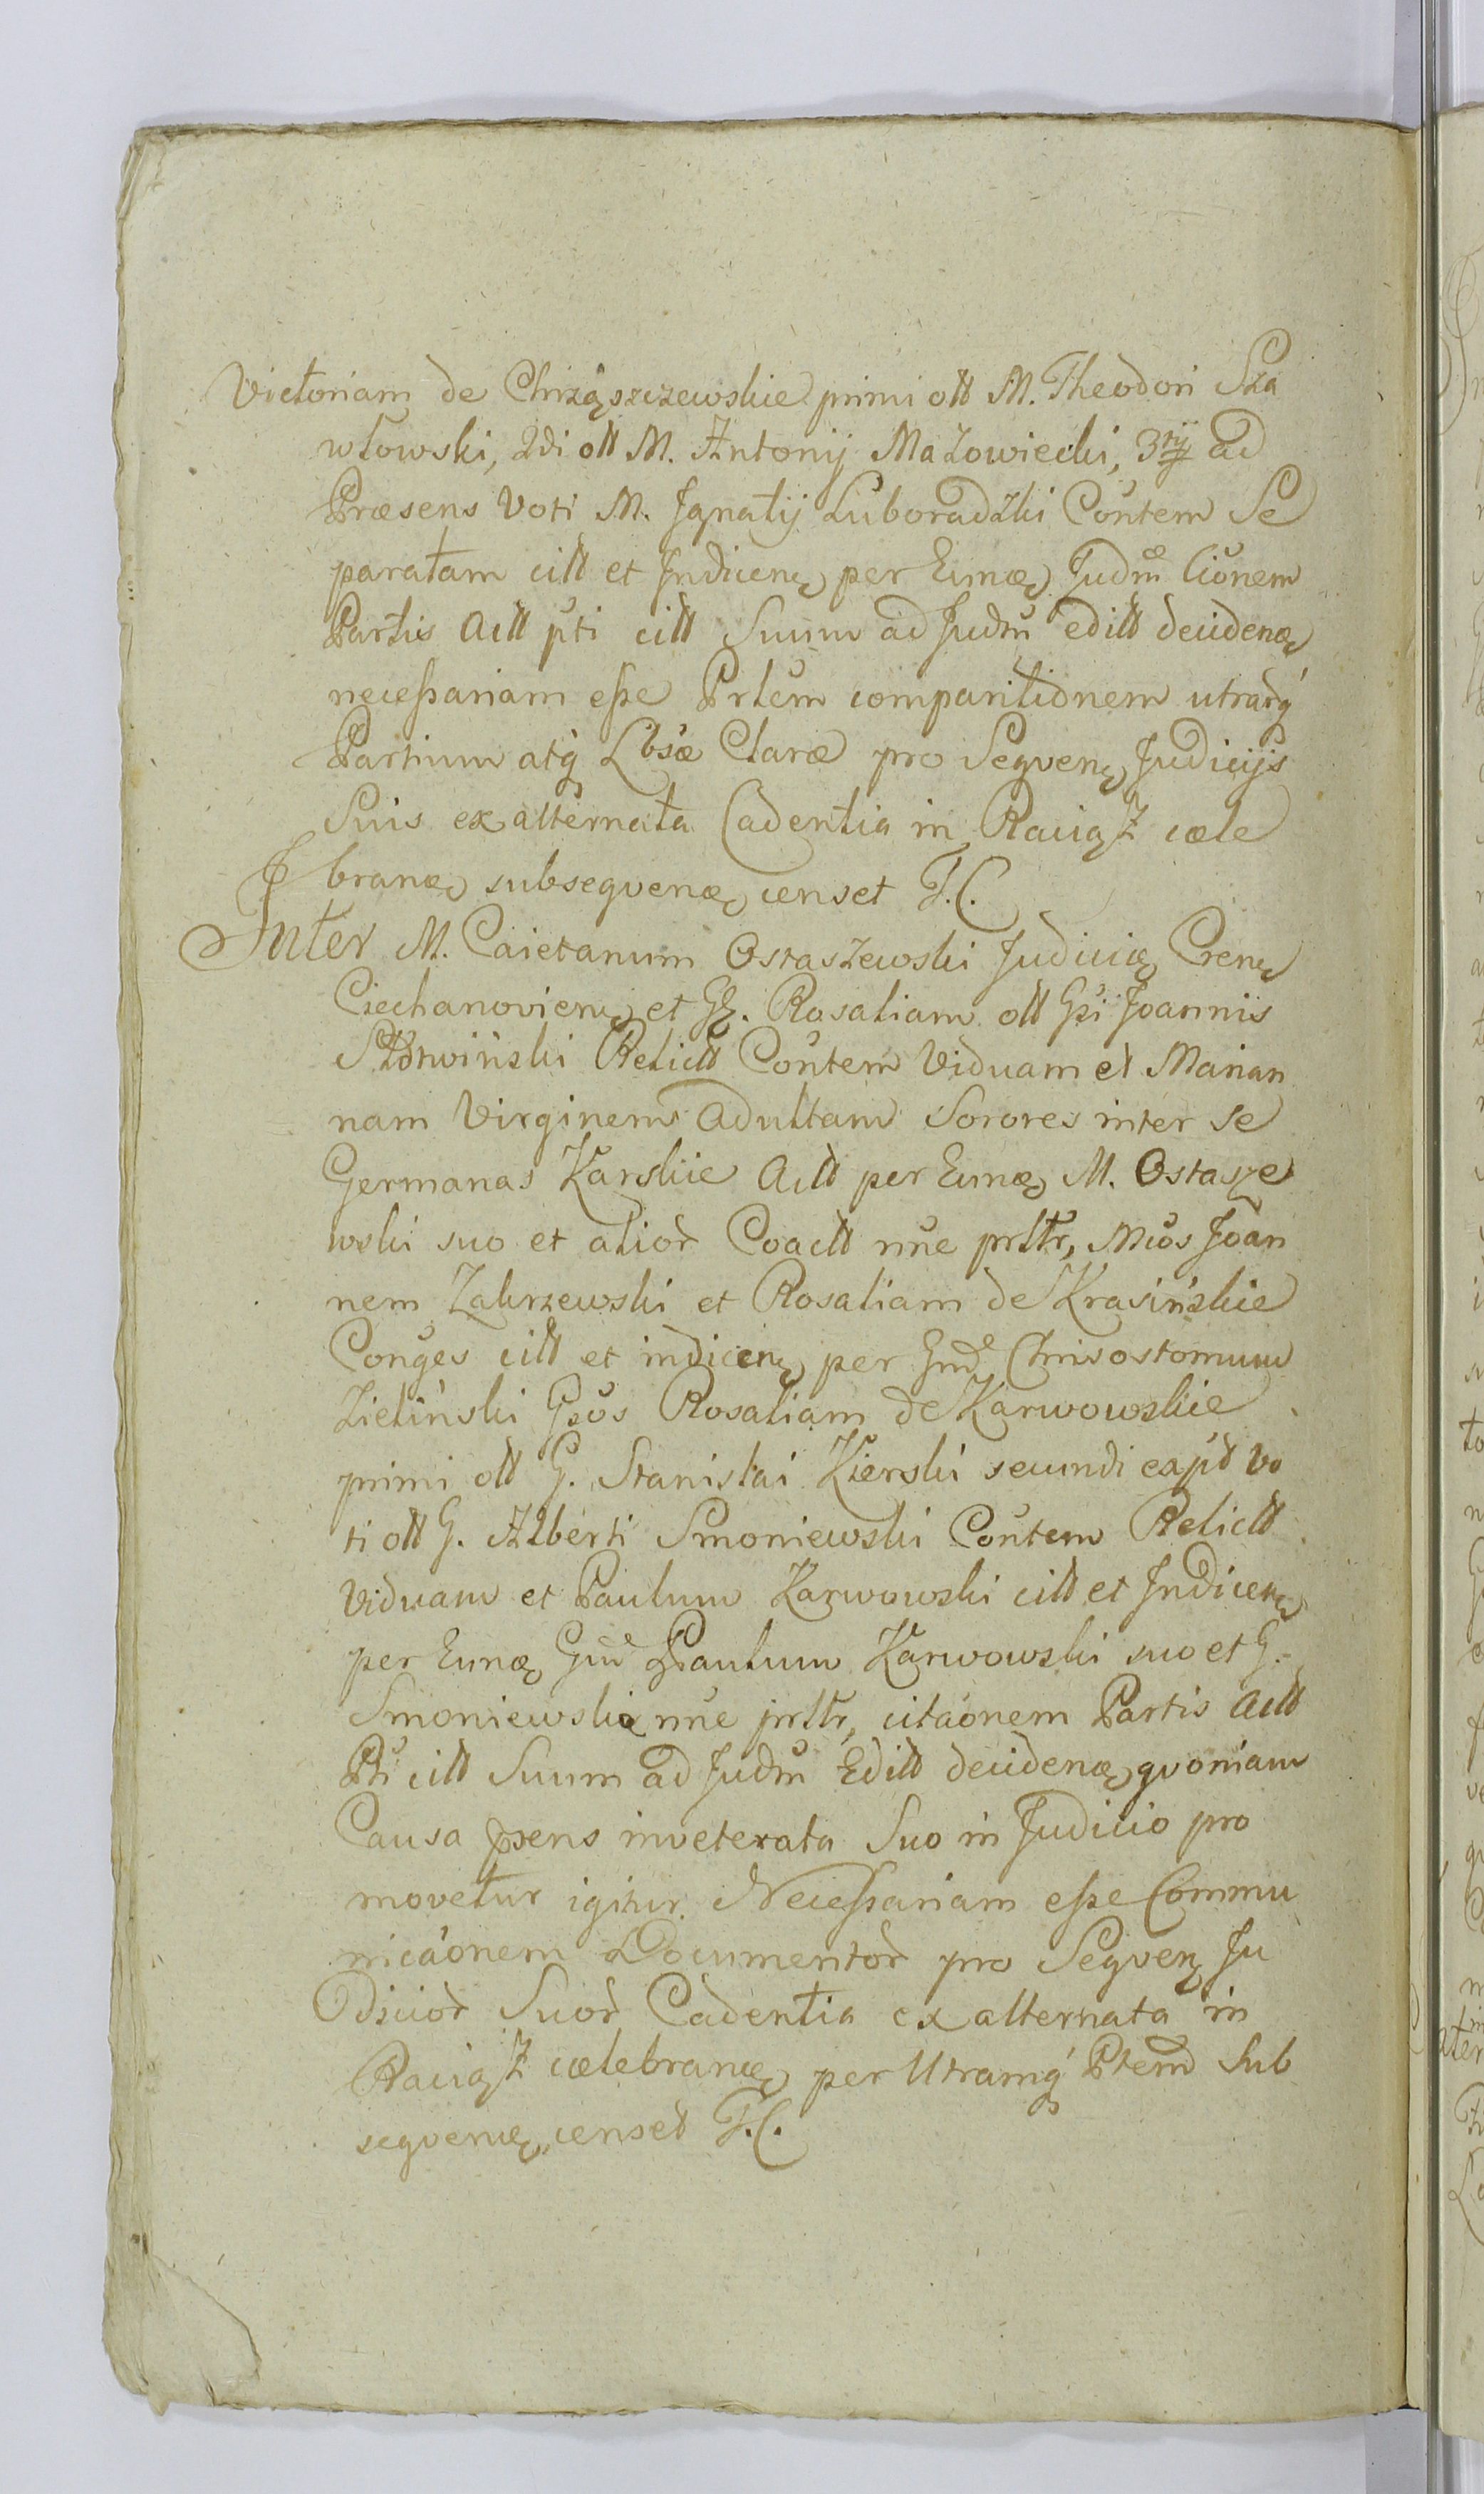 Victoriam de Chrząszczewskie primi olt M. Theodori Sza
włowski, 2di olt M. Antonij Mazowiecki, 3tij ad
Præsens Voti M. Ignatij Luboradzki Contem Se
paratam citt et Indicen per Eunæ Judm Cionem
Partis Actt pti citt Suum ad Judm editt deciden
necessariam esse Prtem comparitionem utrarq
Partium atq Lbsæ Claræ pro Seqven Judicijs
Suis ex alternata Cadentia in Raciąż cæle
bran subseqven censet T.C.
Inter M. Caietanum Ostaszewski Judicię Cren
Ciechanovien et G. Rosaliam olt Gsi Joannis
Słorwiński Relictt Contem Viduam et Marian
nam Virginem Adultam Sorores inter se
Germanas Karskie Actt per Eunæ M. Ostasze
wski suo et alior Coactt nne prltr, Mcos Joan
nem Zakrzewski et Rosaliam de Krasińskie
Conges citt et indicen per Gnd Chrisostomum
Zieliński Gsos Rosaliam de Karwowskie
primi olt G. Stanislai Kierski secundi expt Vo
ti olt G. Alberti Smoniewski Contem Relictt
Viduam et Paulum Karwowski citt et Indicen
per Eunæ Gnd Paulum Karwowski suo et G.
Smoniewska nne prltr, citaonem Partis Actt
Pti citt Suum ad Judm Editt deciden qvoniam
Causa psens inveterata Suo in Judicio pro
movetur igitur Necessariam esse Commu
nicaonem Documentor pro Seqven Ju
dicior Suor Cadentia ex alternata in
Raciąż cælebran per Utramq Ptem Sub
seqven censet T.C.